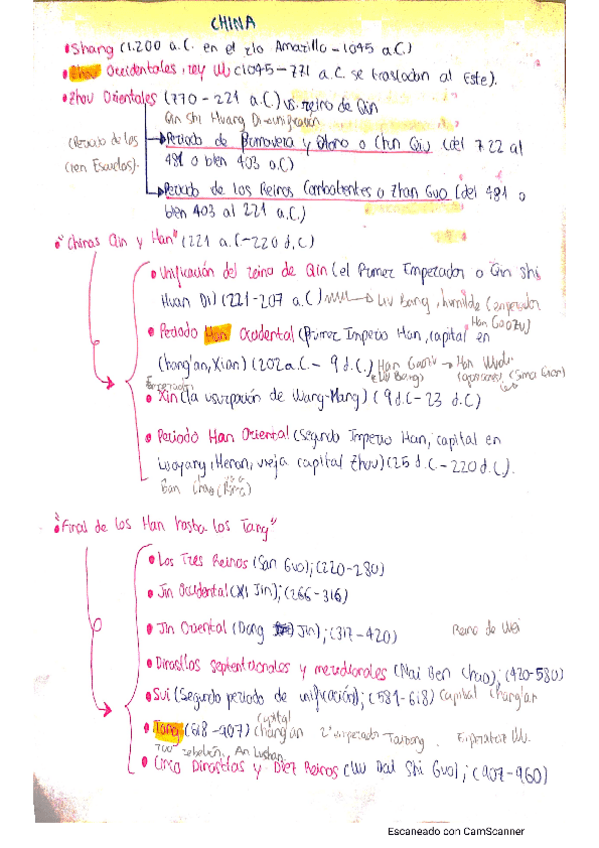 CHINA
• Shang (1.200 a.C. en el río Amarillo – 1045 a.C)
• Zhou Occidentales, rey Wu (1045 – 771 a.C. se trasladan al Este).
• Zhou Orientales (770 – 221 a.C.) vs. reino de Qin
Qin Shi Huang Di → unificación
(Periodo de las
Cien Escuelas).
Periodo de Primavera y Otoño o Chun Qiu (del 722 al
481 o bien 403 a.C)
Periodo de los Reinos Combatientes o Zhan Guo (del 481 o
bien 403 al 221 a.C.)
• "Chinas Qin y Han" (221 a.C – 220 d.C)
• Unificación del reino de Qin (el Primer Emperador o Qin Shi
Huan Di) (221-207 a.C) → Liu Bang, humilde (emperador
Han Gaozu)
• Periodo Han Occidental (Primer Imperio Han, capital en
Chang'an, Xian) (202 a.C. – 9 d.C.) Han Gaozu → Han Wudi
(Liu Bang) (Sima Qian)
• Xin (la usurpación de Wang-Mang) (9 d.C – 23 d.C)
• Periodo Han Oriental (Segundo Imperio Han, capital en
Luoyang, Henan, vieja capital Zhou) (25 d.C. – 220 d.C).
Ban Chao
• "Final de los Han hasta los Tang"
• Los Tres Reinos (San Guo); (220-280)
• Jin Occidental (Xi Jin); (266-316)
• Jin Oriental (Dong Jin); (317-420) Reino de Wei
• Dinastías septentrionales y meridionales (Nai Ben Chao); (420-580)
• Sui (Segundo periodo de unificación); (581-618) Capital Chang'an
• Tang (618-907) capital Chang'an 2º emperador Taizong. Emperatriz Wu.
rebelión, An Lushan
• Cinco Dinastías y Diez Reinos (Wu Dai Shi Guo); (907-960)
Escaneado con CamScanner